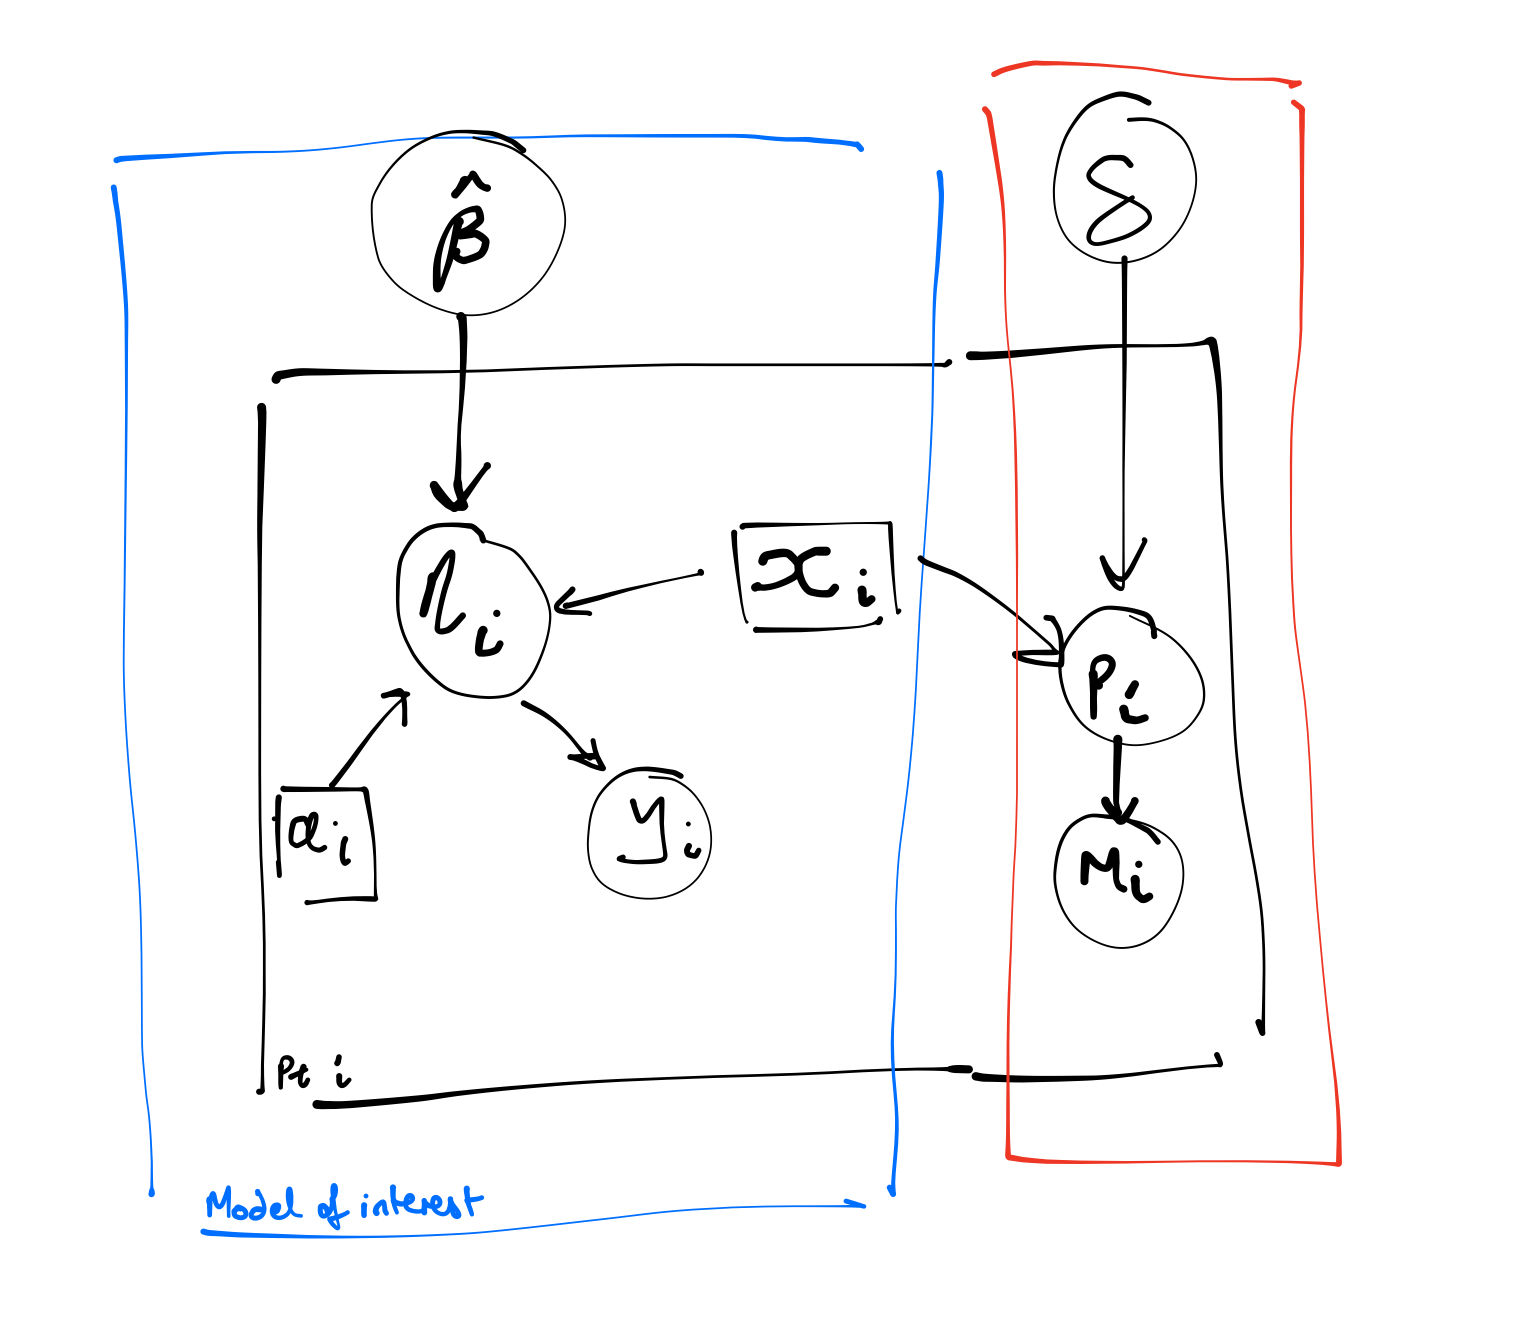 δ
β̂
η i
x i
p i
a i
y i
M i
Pt i
Model of interest